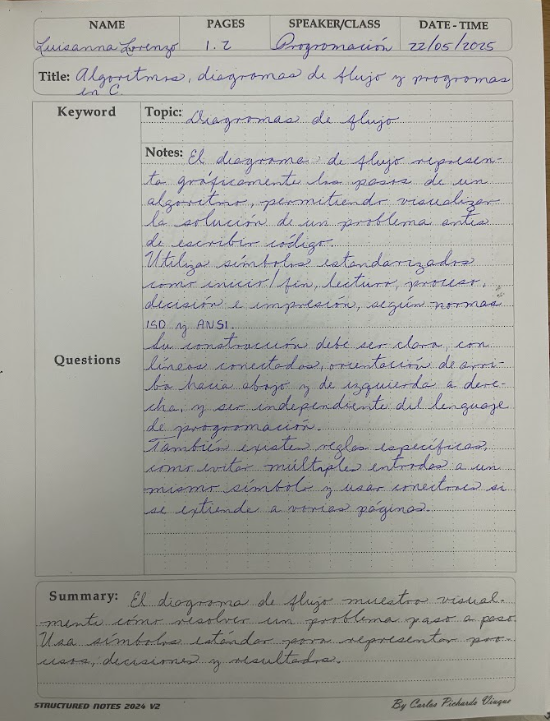 NAME PAGES SPEAKER/CLASS DATE - TIME
Luisanna Lorenzo 1.2 Programación 22/05/2025
Title: Algoritmos, diagramas de flujo y programas
en C.
Keyword
Topic: Diagramas de flujo
Notes: El diagrama de flujo represen-
ta gráficamente los pasos de un
algoritmo, permitiendo visualizar
la solución de un problema antes
de escribir código.
Utiliza símbolos estandarizados
como inicio/fin, lectura, proceso,
decisión e impresión, según normas
ISO y ANSI.
Su construcción debe ser clara, con
Questions
líneas conectadas, orientación de arri-
ba hacia abajo y de izquierda a dere-
cha, y ser independiente del lenguaje
de programación.
También existen reglas específicas,
como evitar múltiples entradas a un
mismo símbolo y usar conectores si
se extiende a varias páginas.
Summary: El diagrama de flujo muestra visual-
mente cómo resolver un problema paso a paso
Usa símbolos estándar para representar pro-
cesos, decisiones y resultados.
STRUCTURED NOTES 2024 V2 By Carlos Pichardo Viuque